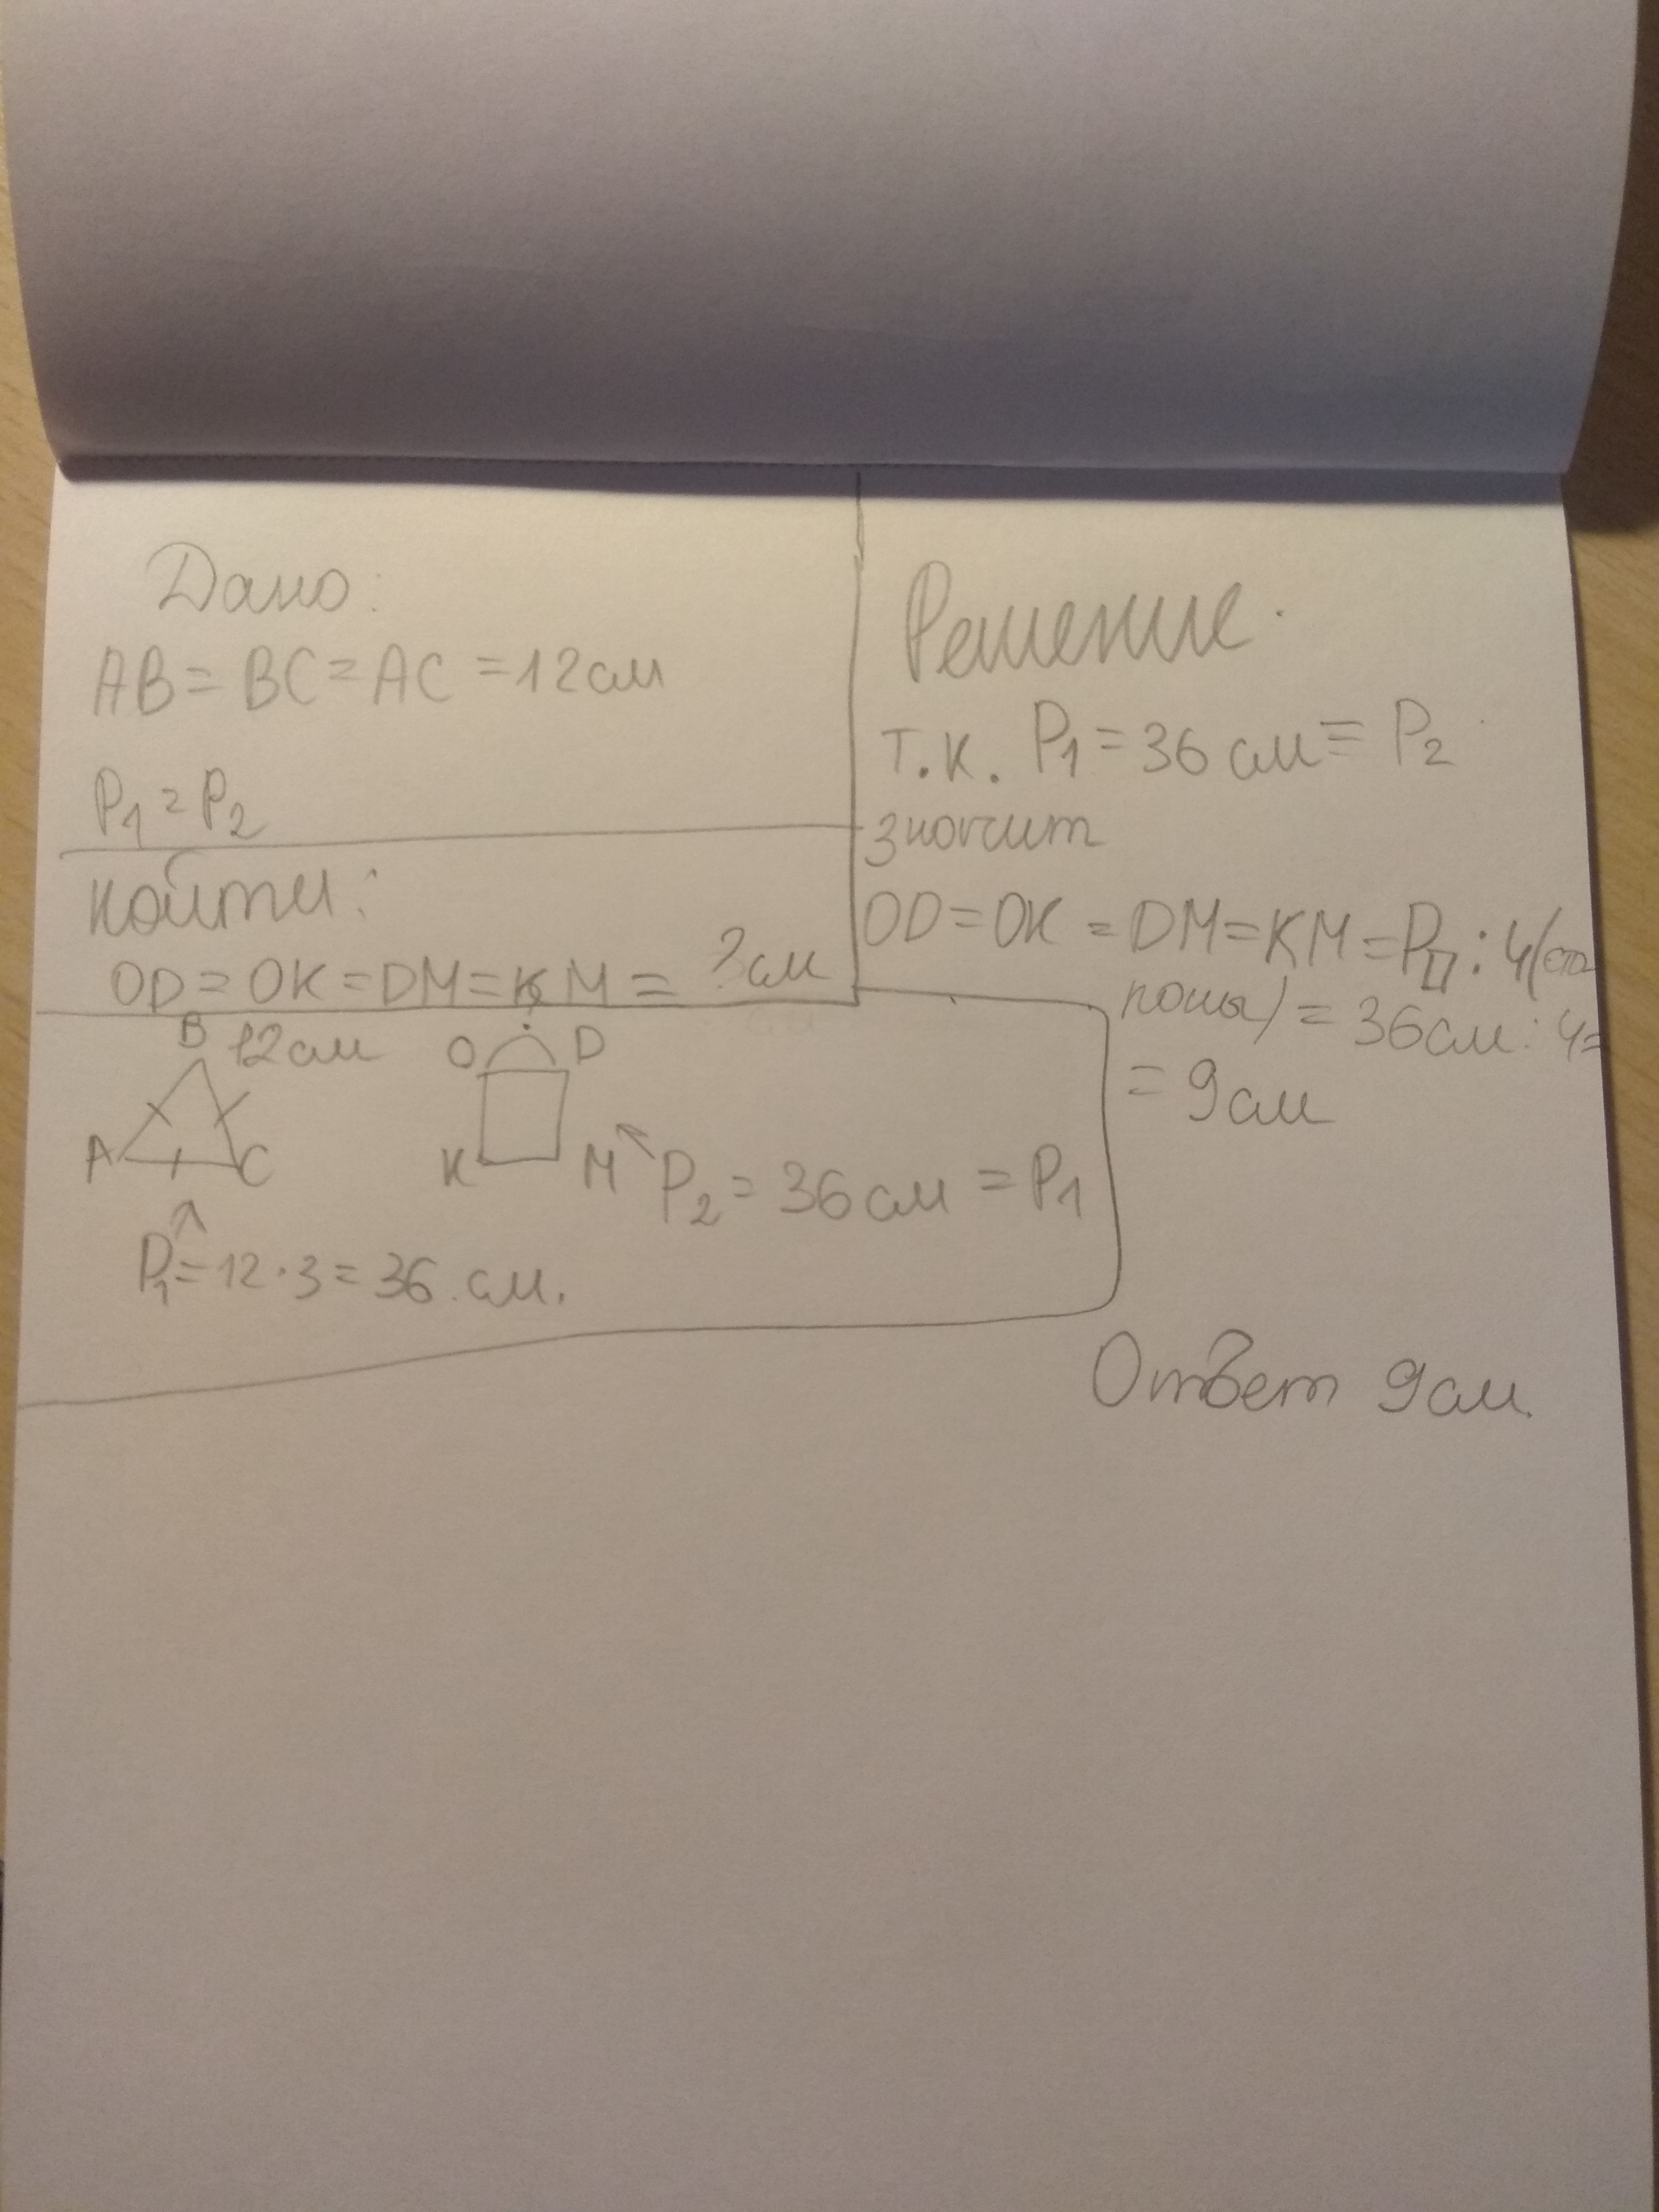 Дано:
AB = BC = AC = 12 см
P1 = P2
Найти:
OD = OK = DM = KM = ? см
B 12 см
A C
O D
K M
P2 = 36 см = P1
P1 = 12 · 3 = 36 см.
Решение.
т.к. P1 = 36 см = P2
значит
OD = OK = DM = KM = P□ : 4 (сто
роны) = 36 см : 4 =
= 9 см
Ответ 9 см.